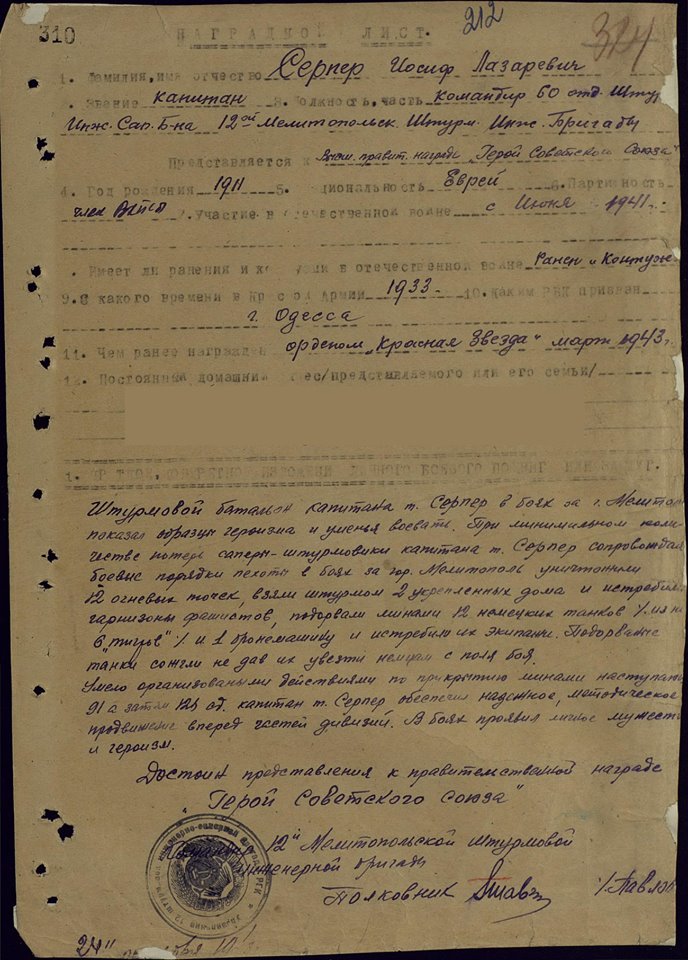 310
212
314
НАГРАДНОЙ ЛИСТ.
1. Фамилия, имя отчество Серпер Иосиф Лазаревич
Звание капитан 3. Должность, часть командир 60 отд. Штур
Инж. Сап. Б-на 12ой Мелитопольск. Штурм. Инж. Бригады
Представляется к Высш. правит. награде "Герой Советского Союза"
4. Год рождения 1911 5. циональность Еврей 6. Партийность
член ВКП(б) 7. Участие в отечественной войне с Июня 1941г.
Имеет ли ранения и ко узии в отечественной войне Ранен и Контужен
9. С какого времени в Крас ой Армии 1933. 10. Каким РВК призван
г. Одесса
11. Чем ранее награжден орденом "Красная Звезда" март 1943г
12. Постоянный домашний ес/представляемого или его семьи/
Штурмовой батальон капитана т. Серпер в боях за г. Мелитоп
показал образцы героизма и уменья воевать. При минимальном коли
честве потерь саперы-штурмовики капитана т. Серпер сопровождая
боевые порядки пехоты в боях за гор. Мелитополь уничтожили
12 огневых точек, взяли штурмом 2 укрепленных дома и истребили
гарнизоны фашистов, подорвали минами 12 немецких танков /из ни
6 "тигров"/ и 1 бронемашину и истребили их экипажи. Подорванные
танки сожгли не дав их увезти немцам с поля боя.
Умело организованными действиями по прикрытию минами наступаю
91 а затем 126 сд. капитан т. Серпер обеспечил надежное, методическое
продвижение вперед частей дивизий. В боях проявил личное мужеств
и героизм.
Достоин представления к правительственной награде
"Герой Советского Союза"
12й Мелитопольской штурмовой
инженерной бригады
Полковник /Павло
"24"